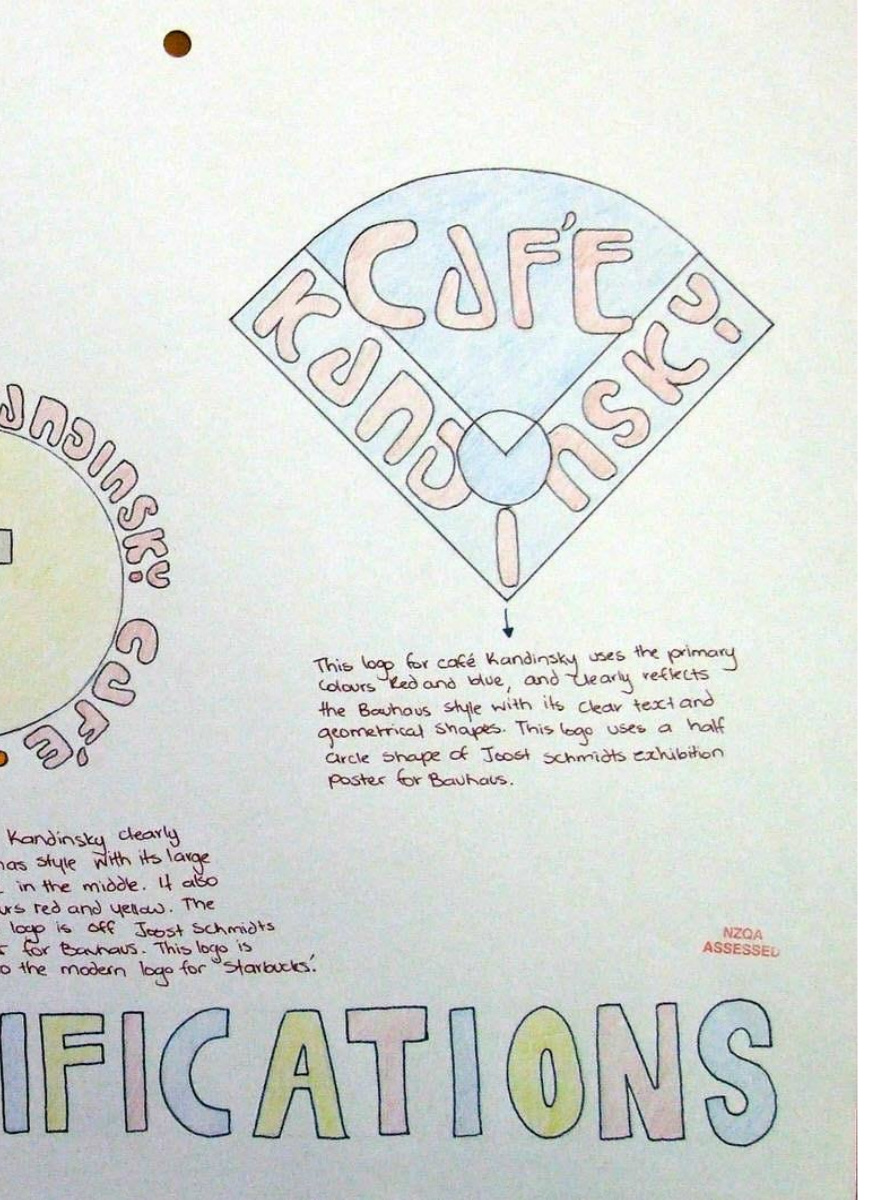 CAFÉ
KANDINSKY
KANDINSKY CAFÉ
This logo for café Kandinsky uses the primary
colours Red and blue, and clearly reflects
the Bauhaus style with its clear text and
geometrical shapes. This logo uses a half
circle shape of Joost Schmidts exhibition
poster for Bauhaus.
Kandinsky clearly
has style with its large
in the middle. It also
urs red and yellow. The
logo is off Joost Schmidts
for Bauhaus. This logo is
o the modern logo for "Starbucks".
NZQA
ASSESSED
IFICATIONS